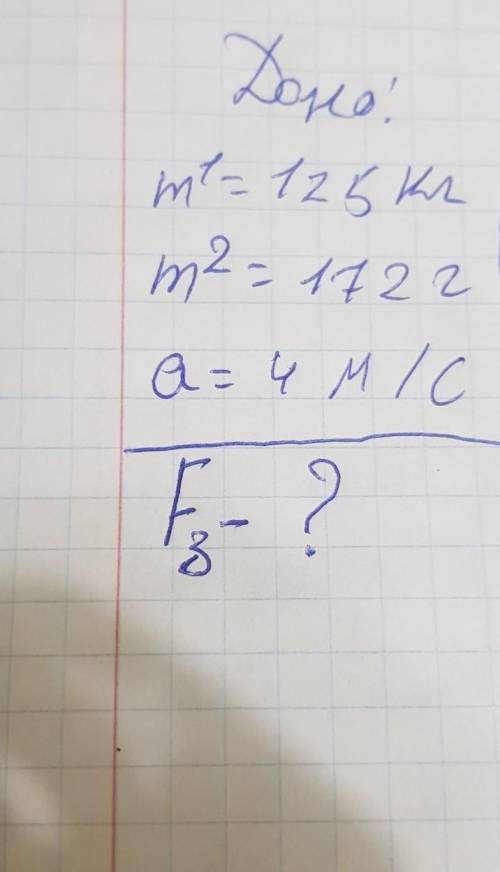 Дано:
m1 = 125 кг
m2 = 172 г
a = 4 м/с
F3 - ?